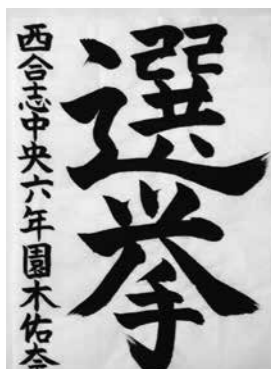 選挙
西合志中央六年園木佑奈